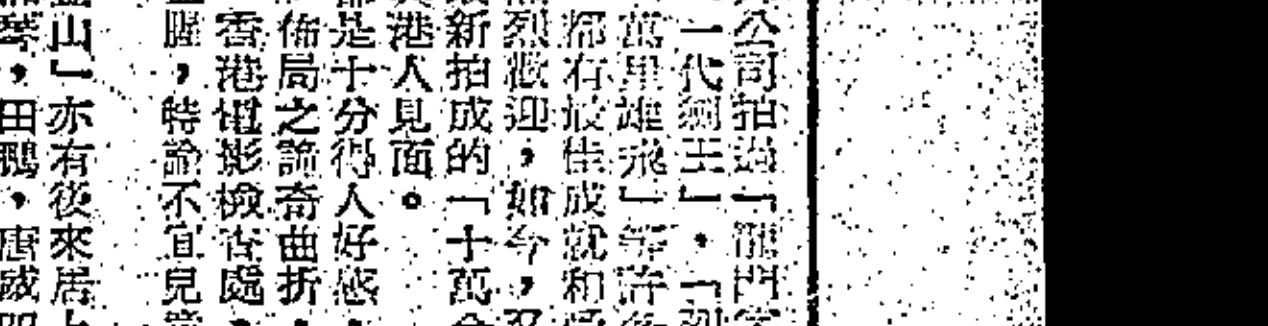 公司拍過「龍門客
一代劍王」，「烈
萬里雄飛」等許
都有最佳成就和
烈歡迎，如今，又
新拍成的「十萬
港人見面。
是十分得人好感，
佈局之詭奇曲折，
香港電影檢查處，
，特諭不宜兒
山」亦有後來居上
琴，田鵬，唐威